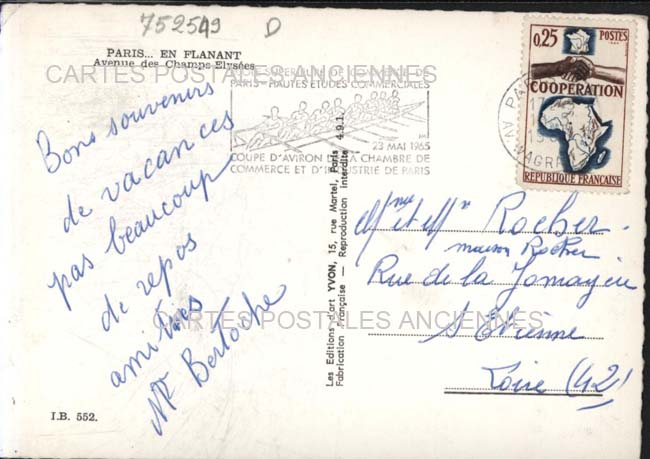 752549 D
PARIS... EN FLANANT
Avenue des Champs-Elysées
CARTES POSTALES ANCIENNES
PARIS - HAUTES ETUDES COMMERCIALES
23 MAI 1965
COUPE D'AVIRON DE LA CHAMBRE DE
COMMERCE ET D'INDUSTRIE DE PARIS
0,25 POSTES
COOPERATION
REPUBLIQUE FRANÇAISE
AV WAGRAM
Bons souvenirs
de vacances
pas beaucoup
de repos
amitiés
Bertoche
Les Editions d'art YVON, 15, rue Martel, Paris 4.9.1.
Fabrication Française — Reproduction interdite
Mme et Mr Rocher
maison Rocher
Rue de la Jomayère
St Etienne
Loire (42)
CARTES POSTALES ANCIENNES
I.B. 552.